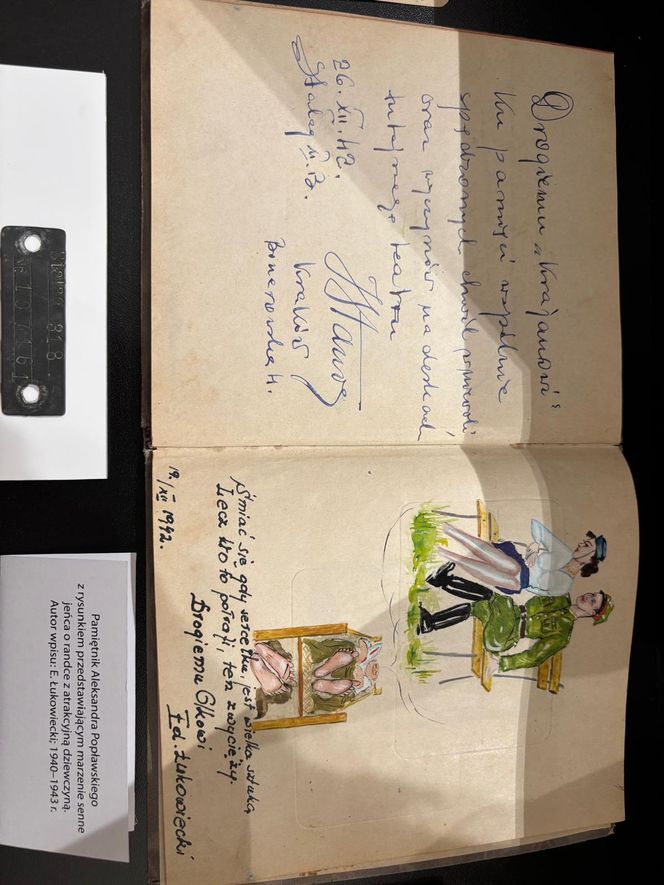 Drogiemu „Krajanowi"
Ku pamięci wspólnie
spędzonych chwil
oraz wyczynów na deskach
tutejszego teatru
26.XII.42.
Stalag II.B.
Kraków
Śmiać się gdy serce łka, jest wielka sztuka
Lecz kto to potrafi, ten zwycięży.
Drogiemu Olkowi
Ed. Łukowiecki
19./XII 1942.
Stalag
Pamiętnik Aleksandra Popławskiego
z rysunkiem przedstawiającym marzenie senne
jeńca o randce z atrakcyjną dziewczyną.
Autor wpisu: E. Łukowiecki; 1940–1943 r.